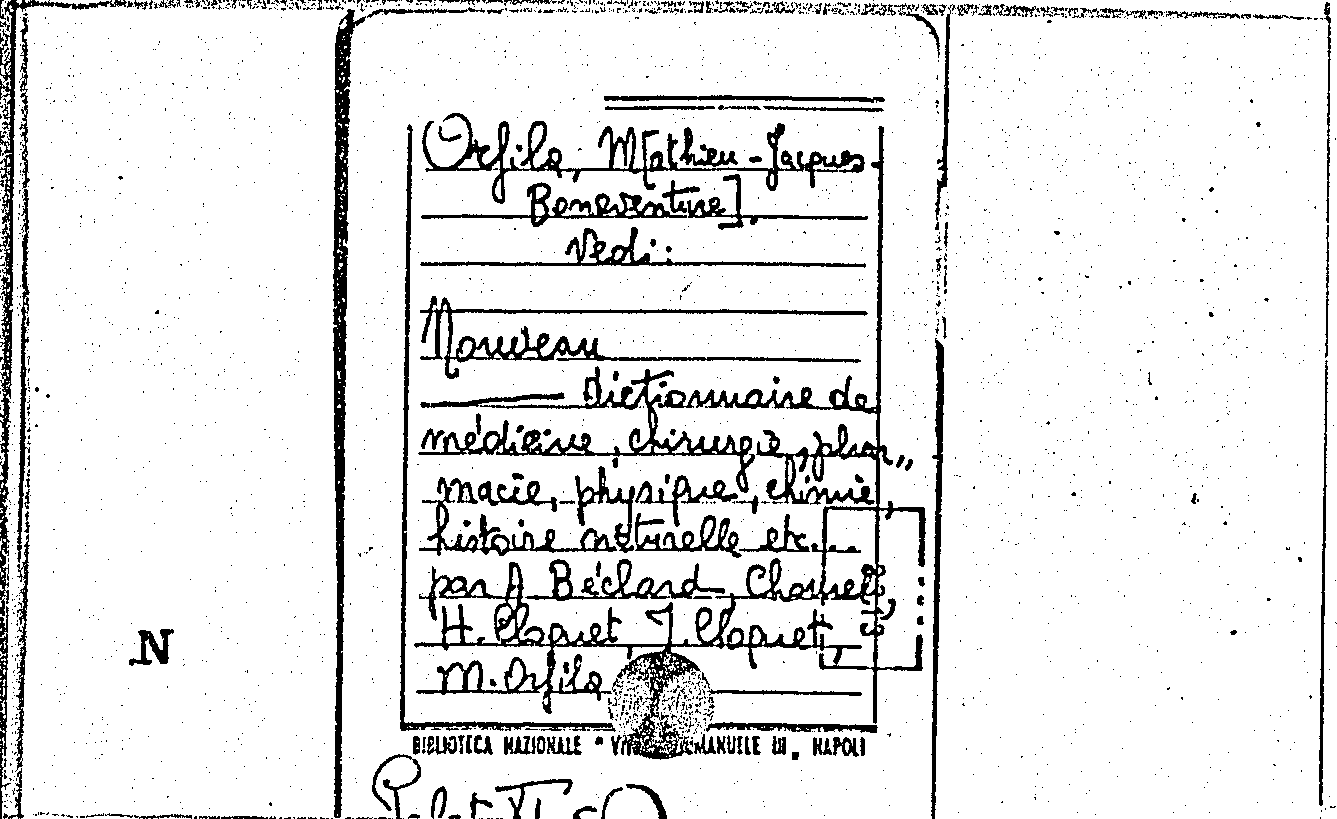 Orfila, M[athieu-Jacques-
Bonaventure].
Vedi:
Nouveau
——— Dictionnaire de
médicine, chirurgie, phar„
macie, physique, chimie,
histoire naturelle etc....
par A Béclard, Chomel,
H. Cloquet, J. Cloquet,
M. Orfila
N
BIBLIOTECA NAZIONALE "
EMANUELE III„ NAPOLI